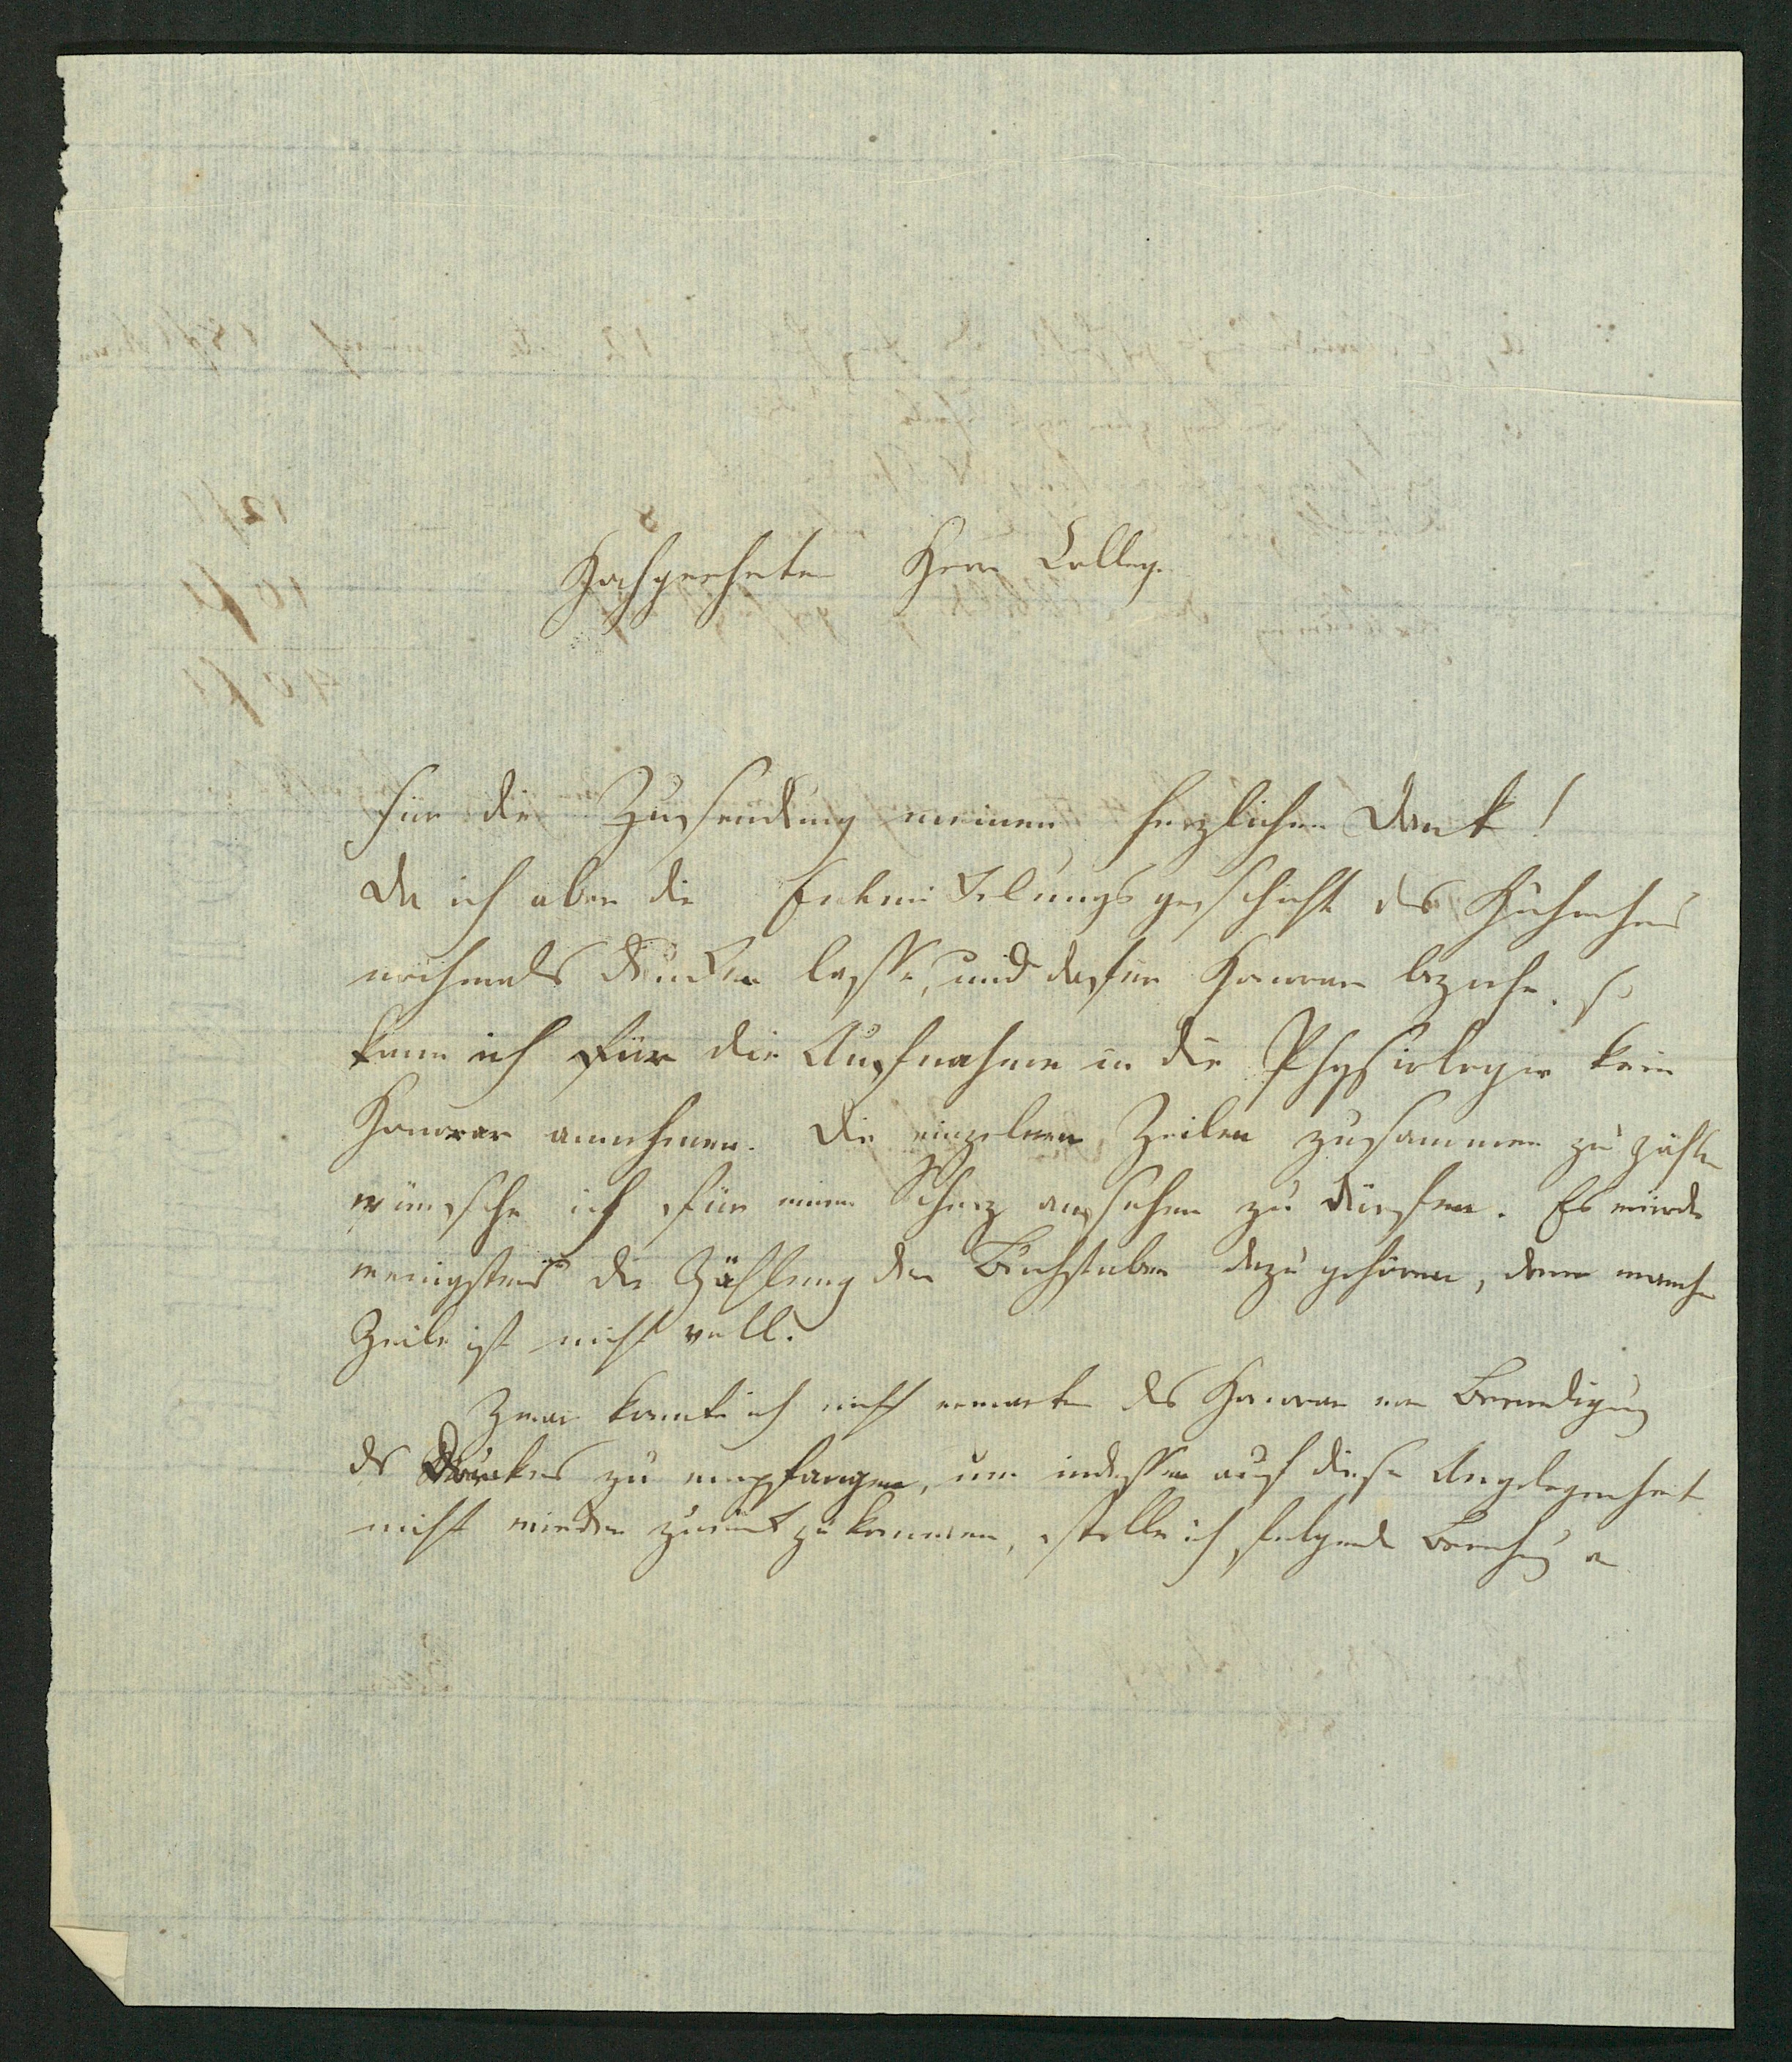 Hochgeehrter Herr Colleg.
Für die Zusendung meinen herzlichen Dank!
Da ich aber die Entwickelungsgeschichte des Hühnchens
nochmals drucken lasse, und dafür Honorar beziehe, so
kann ich für die Aufnahme in die Physiologie kein
Honorar annehmen. Die einzelnen Zeilen zusammen zu zählen
wünsche ich für einen Scherz ansehen zu dürfen. Es würde
wenigstens die Zählung der Buchstaben dazu gehören, denn manche
Zeile ist nicht voll.
Zwar konnte ich nicht erwarten das Honorar vor Beendigung
des Druckes zu empfangen, um indessen auf diese Angelegenheit
nicht wieder zurück zu kommen, stelle ich folgende Berechnung an